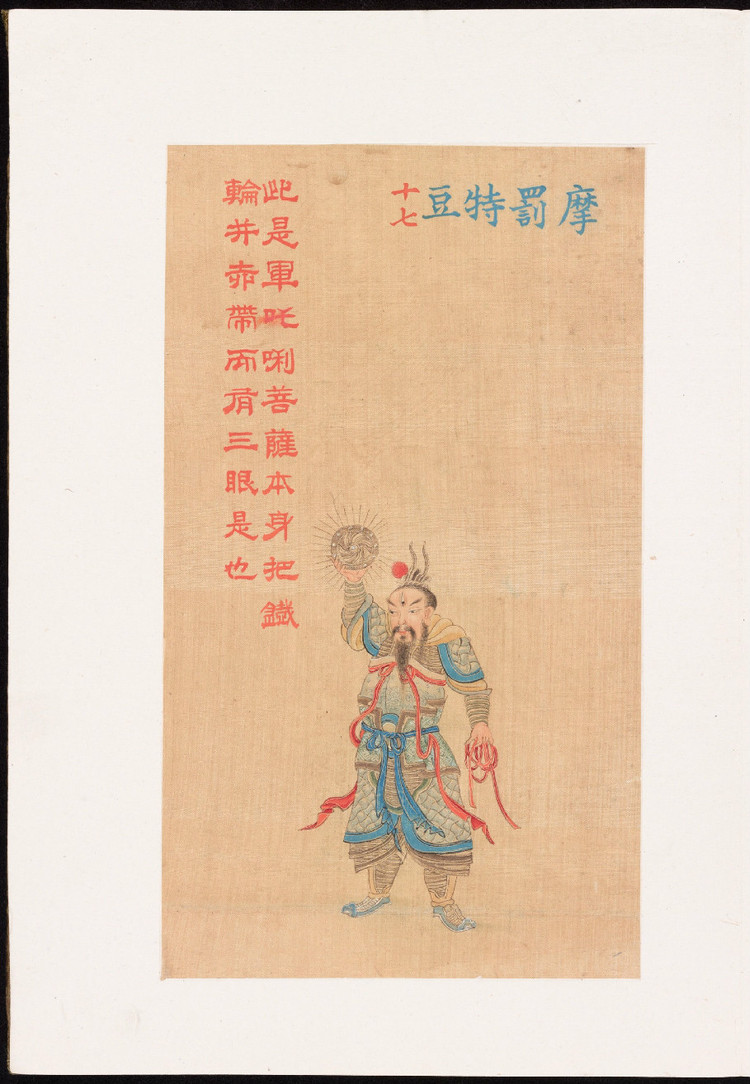 摩罰特豆
十七
此是軍吒唎菩薩本身把鐵
輪并赤帶而有三眼是也